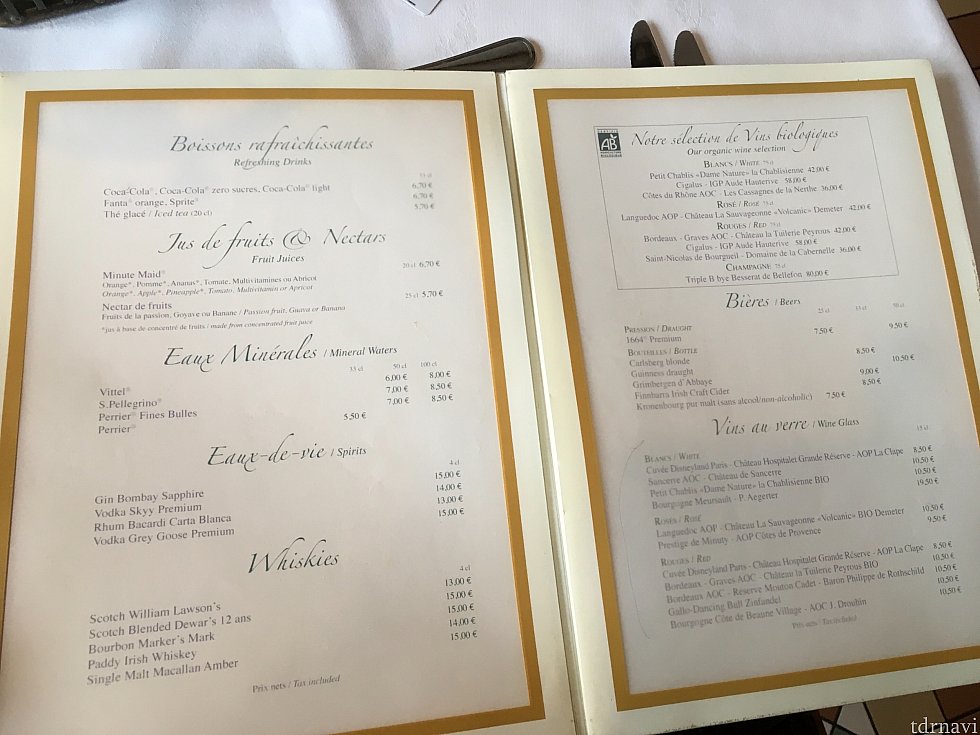 Boissons rafraîchissantes
Refreshing Drinks
33 cl
Coca-Cola®, Coca-Cola® zero sucres, Coca-Cola® light 6,70 €
Fanta® orange, Sprite® 6,70 €
Thé glacé / Iced tea (20 cl) 5,70 €
Jus de fruits & Nectars
Fruit Juices
Minute Maid® 20 cl 6,70 €
Orange*, Pomme*, Ananas*, Tomate, Multivitamines ou Abricot
Orange*, Apple*, Pineapple*, Tomato, Multivitamin or Apricot
Nectar de fruits 25 cl 5,70 €
Fruits de la passion, Goyave ou Banane / Passion fruit, Guava or Banana
*jus à base de concentré de fruits / made from concentrated fruit juice
Eaux Minérales / Mineral Waters
33 cl 50 cl 100 cl
Vittel® 6,00 € 8,00 €
S.Pellegrino® 7,00 € 8,50 €
Perrier® Fines Bulles 7,00 € 8,50 €
Perrier® 5,50 €
Eaux-de-vie / Spirits
4 cl
Gin Bombay Sapphire 15,00 €
Vodka Skyy Premium 14,00 €
Rhum Bacardi Carta Blanca 13,00 €
Vodka Grey Goose Premium 15,00 €
Whiskies
4 cl
Scotch William Lawson's 13,00 €
Scotch Blended Dewar's 12 ans 15,00 €
Bourbon Marker's Mark 15,00 €
Paddy Irish Whiskey 14,00 €
Single Malt Macallan Amber 15,00 €
Prix nets / Tax included
AB
Notre sélection de Vins biologiques
Our organic wine selection
BLANCS / WHITE 75 cl
Petit Chablis «Dame Nature» la Chablisienne 42,00 €
Cigalus - IGP Aude Hauterive 58,00 €
Côtes du Rhône AOC - Les Cassagnes de la Nerthe 36,00 €
ROSÉ / ROSE 75 cl
Languedoc AOP - Château La Sauvageonne «Volcanic» Demeter 42,00 €
ROUGES / RED 75 cl
Bordeaux - Graves AOC - Château la Tuilerie Peyrous 42,00 €
Cigalus - IGP Aude Hauterive 58,00 €
Saint-Nicolas de Bourgueil - Domaine de la Cabernelle 36,00 €
CHAMPAGNE 75 cl
Triple B bye Besserat de Bellefon 80,00 €
Bières / Beers
25 cl 33 cl 50 cl
PRESSION / DRAUGHT
1664® Premium 7,50 € 9,50 €
BOUTEILLES / BOTTLE
Carlsberg blonde 8,50 €
Guinness draught 10,50 €
Grimbergen d'Abbaye 9,00 €
Finnbarra Irish Craft Cider 8,50 €
Kronenbourg pur malt (sans alcool/non-alcoholic) 7,50 €
Vins au verre / Wine Glass
15 cl
BLANCS / WHITE
Cuvée Disneyland Paris - Château Hospitalet Grande Réserve - AOP La Clape 8,50 €
Sancerre AOC - Château de Sancerre 10,50 €
Petit Chablis «Dame Nature» la Chablisienne BIO 10,50 €
Bourgogne Meursault - P. Aegerter 19,50 €
ROSÉS / ROSÉ
Languedoc AOP - Château La Sauvageonne «Volcanic» BIO Demeter 10,50 €
Prestige de Minuty - AOP Côtes de Provence 9,50 €
ROUGES / RED
Cuvée Disneyland Paris - Château Hospitalet Grande Réserve - AOP La Clape 8,50 €
Bordeaux - Graves AOC - Château la Tuilerie Peyrous BIO 10,50 €
Bordeaux AOC - Réserve Mouton Cadet - Baron Philippe de Rothschild 10,50 €
Gallo-Dancing Bull Zinfandel 10,50 €
Bourgogne Côte de Beaune Village - AOC J. Drouhin 10,50 €
Prix nets / Tax included
tdrnavi